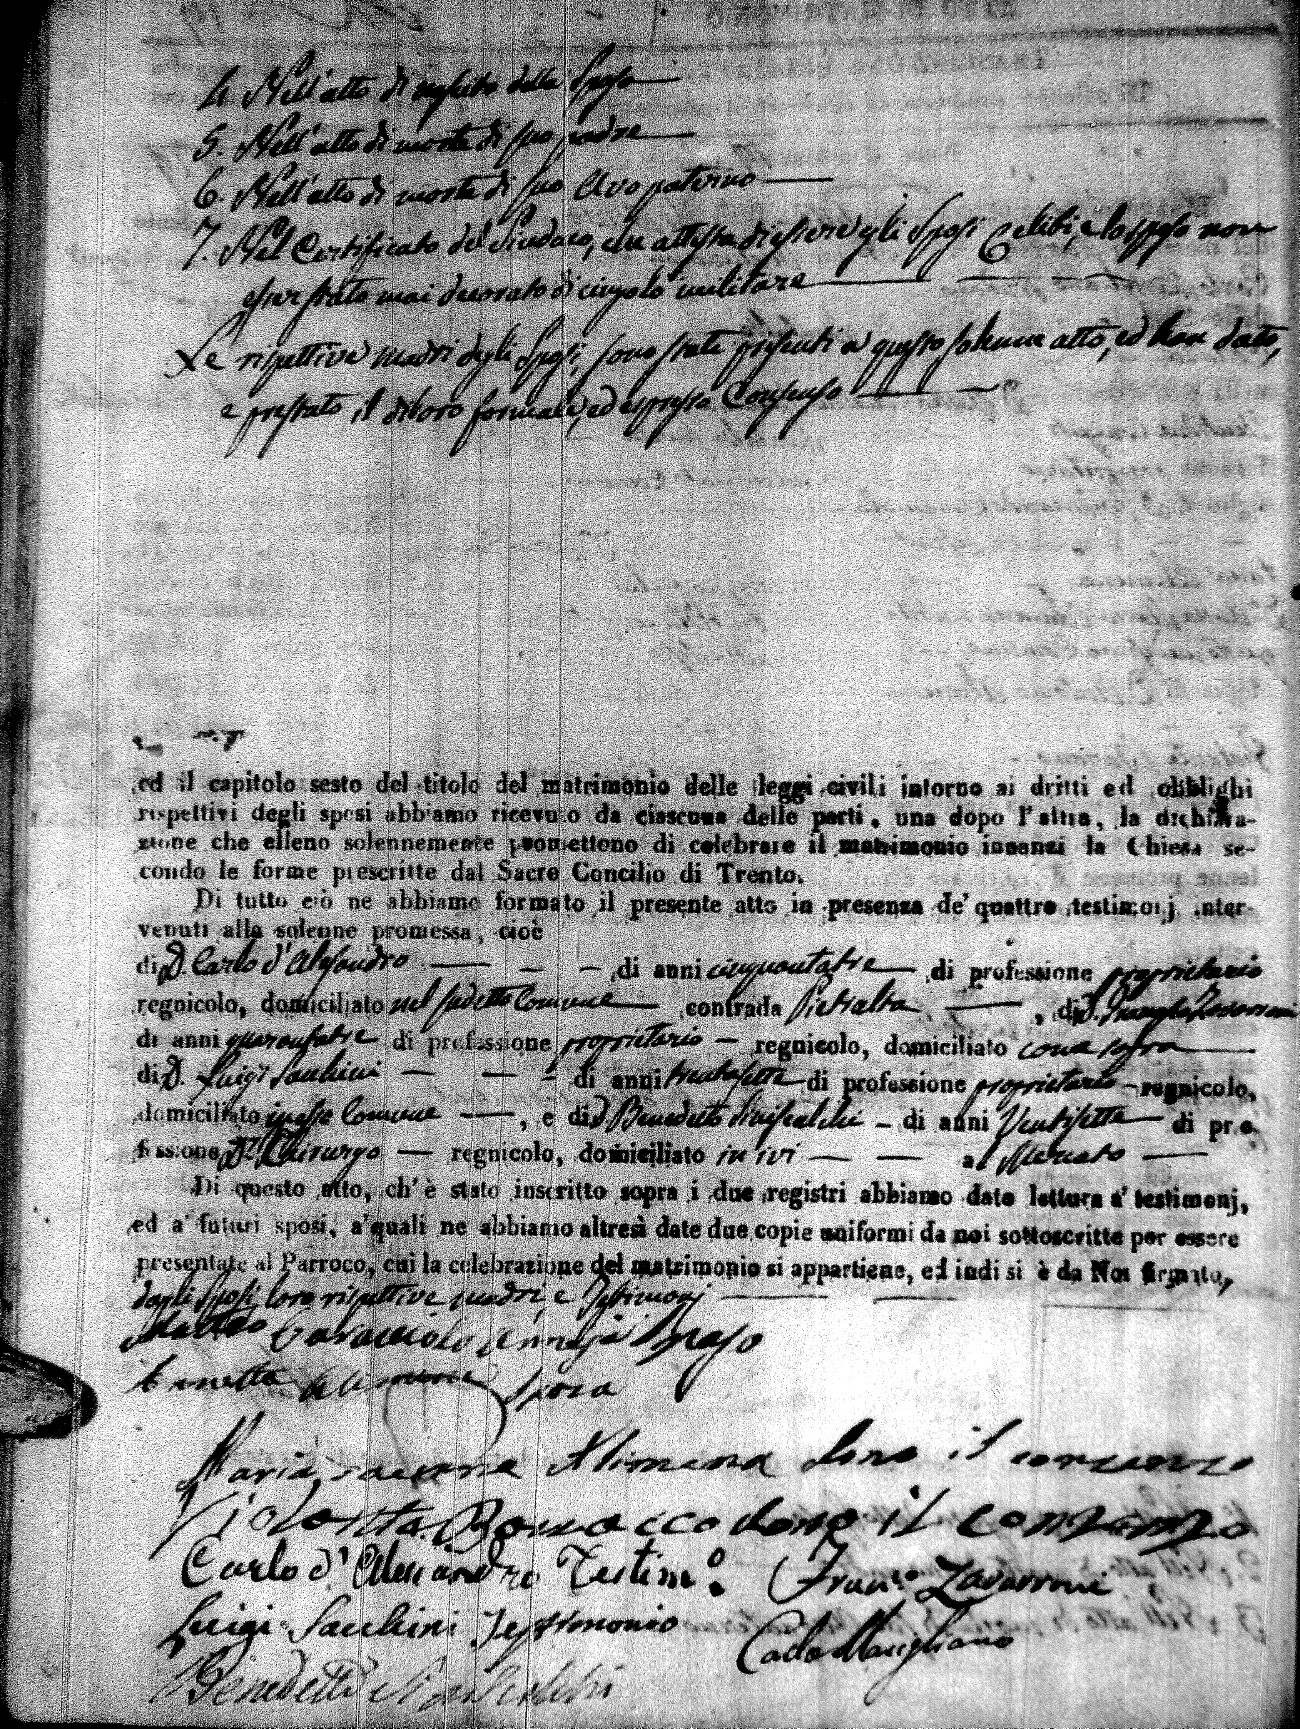 4. Nell'atto di nascita della Sposa
5. Nell'atto di morte di suo padre
6. Nell'atto di morte di suo Avo paterno
7. Nel Certificato del Sindaco, che attesta di essere gli Sposi Celibi, e lo sposo non
esser stato mai decorato di cingolo militare
Le rispettive madri degli Sposi, sono state presenti a questo solenne atto, ed han dato,
e prestato il di loro formale, ed espresso Consenso
ed il capitolo sesto del titolo del matrimonio delle leggi civili intorno ai dritti ed obblighi
rispettivi degli sposi abbiamo ricevuto da ciascuna delle parti, una dopo l'altra, la dichiara-
zione che elleno solennemente promettono di celebrare il matrimonio innanzi la Chiesa se-
condo le forme prescritte dal Sacro Concilio di Trento.
Di tutto ciò ne abbiamo formato il presente atto in presenza de' quattro testimonj inter-
venuti alla solenne promessa, cioè
di D. Carlo d'Alesandro di anni cinquantatre di professione proprietario
regnicolo, domiciliato nel sudetto Comune contrada Pietralta, di D. Zavarroni
di anni quarantatre di professione proprietario regnicolo, domiciliato come sopra
di D. Luigi Sacchini di anni trentasette di professione proprietario regnicolo,
domiciliato in esso Comune, e di D. Benedetto di anni Ventisette di pro-
fessione Dr. Chirurgo regnicolo, domiciliato in ivi al Mercato
Di questo atto, ch' è stato inscritto sopra i due registri abbiamo dato lettura a' testimonj,
ed a' futuri sposi, a' quali ne abbiamo altresì date due copie uniformi da noi sottoscritte per essere
presentate al Parroco, cui la celebrazione del matrimonio si appartiene, ed indi si è da Noi firmato,
dagli Sposi, loro rispettive madri, e Testimonj
Matteo Caracciolo Sposo
Annetta Alimena Sposa
Maria Alimena dono il conzenzo
Violanta Bonacco dono il conzenzo
Carlo d'Alessandro Testim.o Franc.o Zavarroni
Luigi Sacchini Testimonio Carlo Maigliano
Benedetto